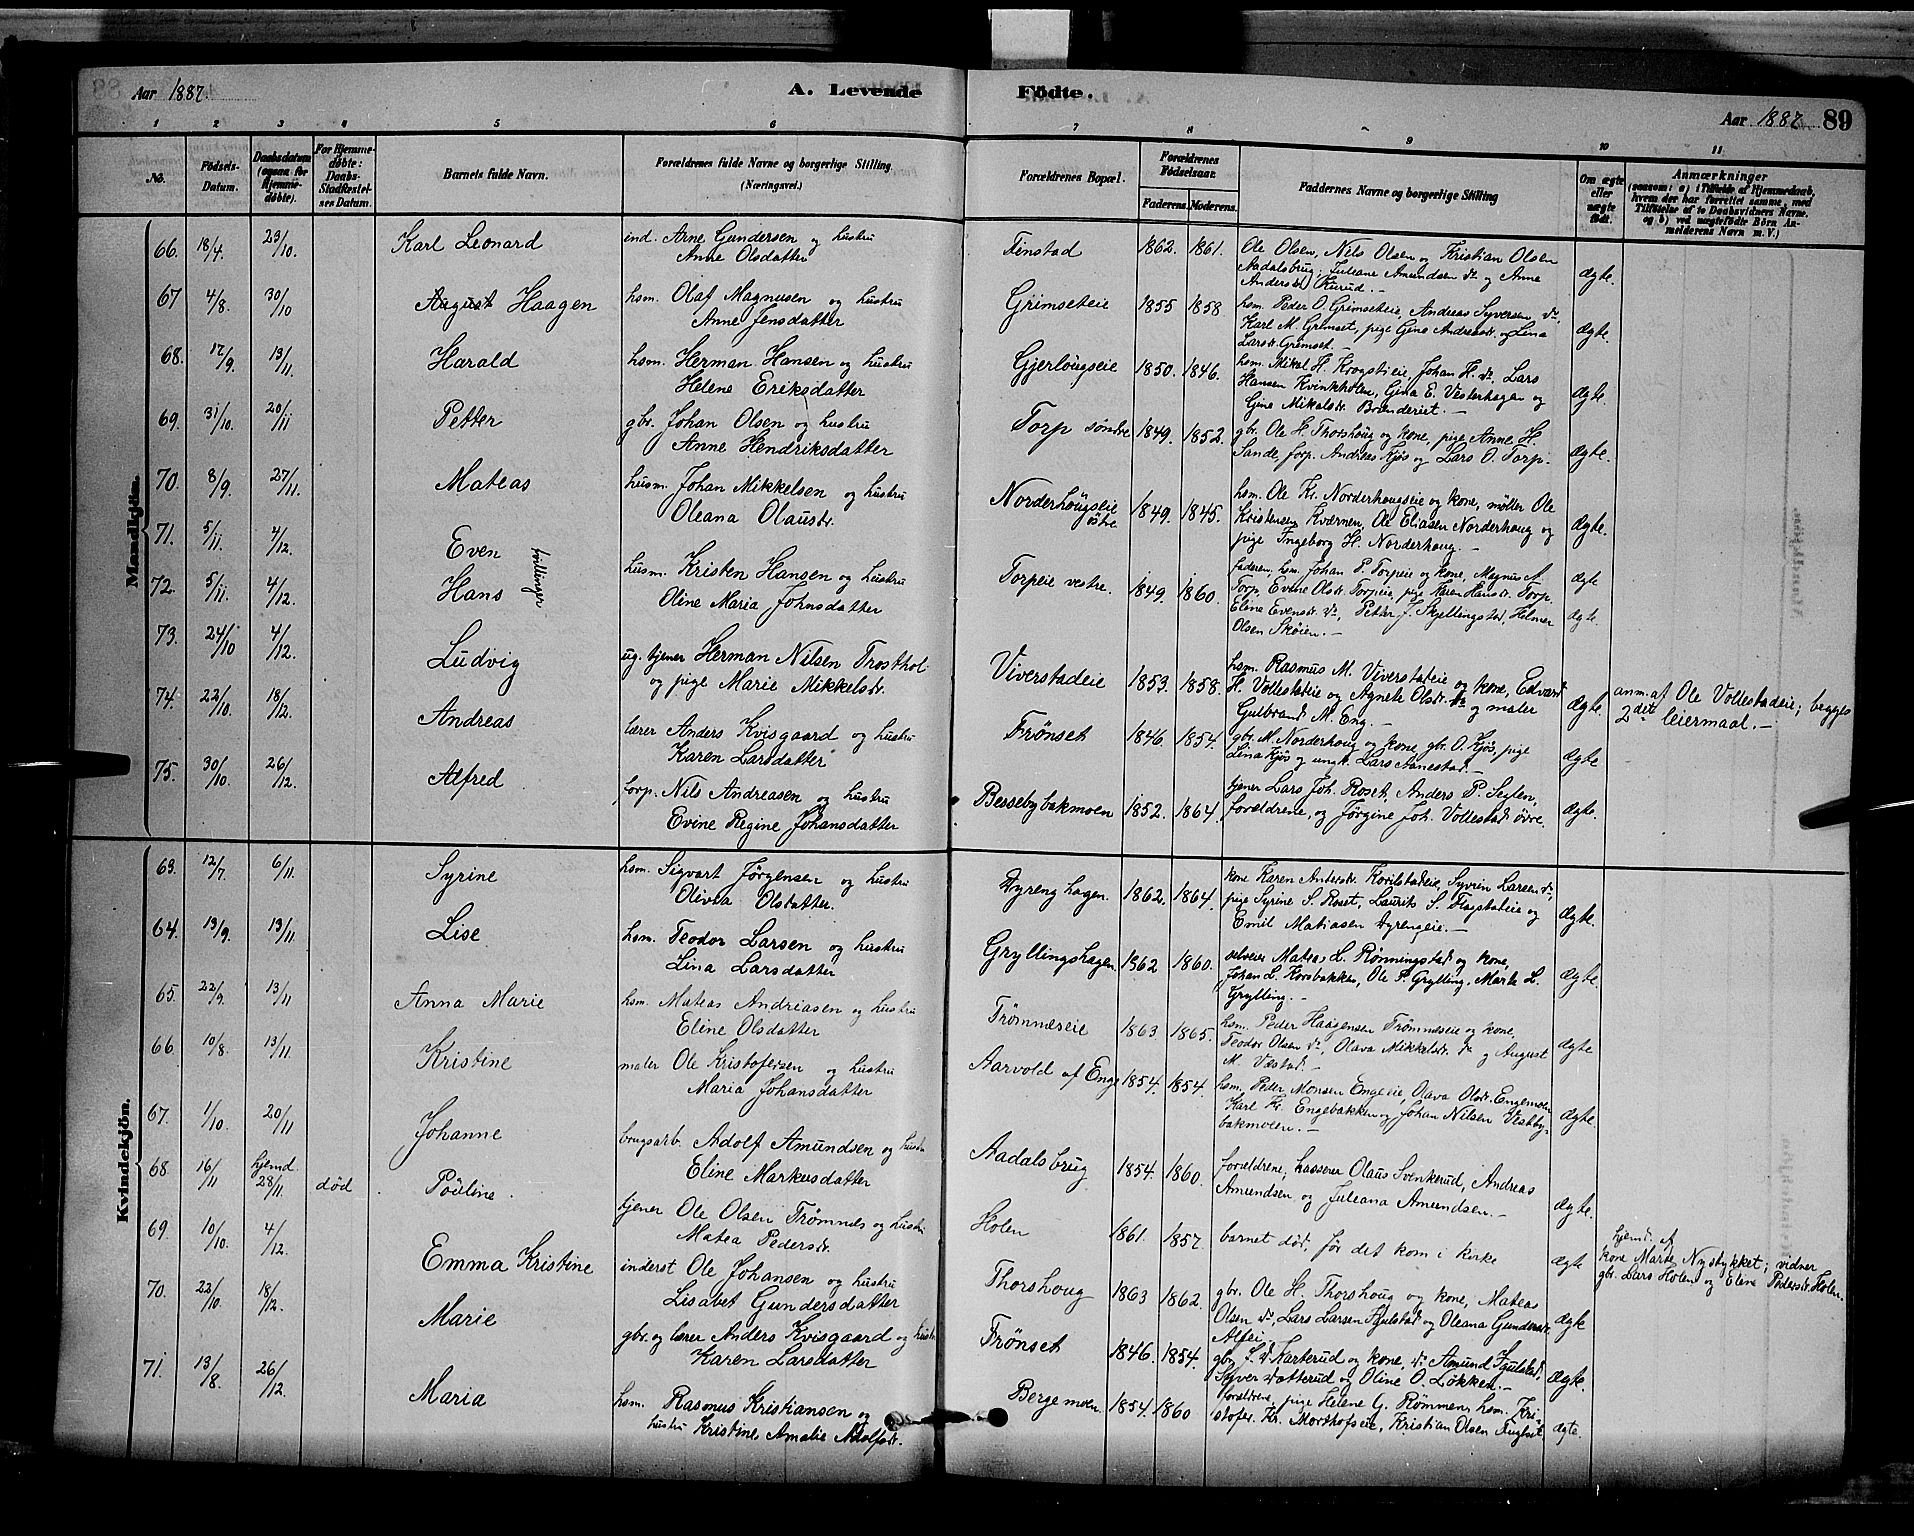 Aar 1887.
A. Levende
Födte.
Aar 1887
89
1 2 3 4 5 6
7 8 9 10 11
No.
Födsels-Datum.
Daabsdatum (ogsaa for Hjemme-döbte).
For Hjemme-döbte: Daabs-Stadfæstel-ses Datum.
Barnets fulde Navn.
Forældrenes fulde Navne og borgerlige Stilling. (Næringsvei.)
Forældrenes Bopæl.
Forældrenes Födselsaar.
Faderens. Moderens.
Faddernes Navne og borgerlige Stilling
Om ægte eller uægte födt.
Anmærkninger
(saasom: a) i Tilfælde af Hjemmedaab, hvem der har forrettet samme, med Tilföielse af to Daabsvidners Navne, og b) ved uægtefödte Börn An-melderens Navn m. V.)
Mandkjön.
66. 18/4. 23/10. Karl Leonard ind. Arne Gundersen og hustru
Anne Olsdatter
Finstad 1862. 1861. Ole Olsen, Nils Olsen og Kristian Olsen
Aadalsbrug, Juliane Amundsen do og Anne
Andersd. Kurud.- ægte.
67 4/8. 30/10 August Haagen hsm. Olaf Magnusen og hustru
Anne Jensdatter
Grimseteie 1855 1858 hsm. Peder O. Grimseteie, Andreas Syversen do,
Karl M. Grimset, pige Gina Andreasdr. og Lina
Larsdr. Grimset.- ægte.
68. 17/9. 13/11. Harald hsm. Herman Hansen og hustru
Helene Eriksdatter
Gjerlougseie 1850. 1846. hsm. Mikal H. Krogstieie, Johan H. do, Lars
Hansen Kvinkholen, Gina E. Vesterhagen og
Gina Mikalsdr. Brænderiet.- ægte.
69. 31/10. 20/11 Petter gbr. Johan Olsen og hustru
Anne Hendriksdatter
Torp søndre 1849. 1852. gbr. Ole H. Thorshoug og kone, pige Anne H.
Sande, forp. Andreas Kjøs og Lars O. Torp.- ægte.
70. 8/9. 27/11. Mateas husm. Johan Mikkelsen og hustru
Oleana Olausdr.
Norderhougseie østre 1849. 1845. hsm. Ole Kr. Norderhougseie og kone, møller Ole
Kristensen Kværnen, Ole Eliasen Norderhoug og
pige Ingeborg H. Norderhoug.- ægte.
71. 5/11. 4/12. Even tvillinger
72. 5/11. 4/12. Hans husm. Kristen Hansen og hustru
Oline Maria Johnsdatter
Torpeie vestre. 1849. 1860. faderen, hsm. Johan P. Torpeie og kone, Magnus A.
Torp, Evine Olsdr. Torpeie, pige Karen Hansdr. Torp.
Eline Evensdr. do, Petter J. Skjellingstad, Helmer
Olsen Skøien.- ægte ægte.
73. 24/10 4/12. Ludvig ug. tjener Herman Nilsen Trosthol
og pige Marie Mikkelsdr.
Viverstadeie 1853. 1858. hsm. Rasmus M. Viverstadeie og kone, Edvard
H. Vollestadeie og Agnete Olsdr. do og maler
Gulbrand M. Eng.- ægte. anm. af Ole Vollestadeie; begges
2det leiermaal.-
74. 22/10. 18/12. Andreas lærer Anders Kvisgaard og hustru
Karen Larsdatter
Frønset 1846. 1854. gbr. M. Norderhoug og kone, gbr. O. Kjøs, pige
Lina Kjøs og ungk. Lars Aanestad.- ægte
75. 30/10. 26/12. Alfred forp. Nils Andreasen og hustru
Evine Regine Johansdatter
Bessebybakmoen 1852. 1864. tjener Lars Joh. Roset, Anders P. Seglen,
forældrene, og Jørgine Joh. Vollestad øvre. ægte.
Kvindekjön.
63. 12/7. 6/11. Syrine hsm. Sigvart Jörgensen og hustru
Olivia Olsdatter.
Dyrenghagen. 1862. 1864. kone Karen Andersdr. Korslstadeie, Syverin Laren do,
pige Syrine S. Roset, Laurits S. Flagstadeie og
Emil Matiasen Dyrengeie.- ægte.
64. 13/9. 13/11 Lise hsm. Teodor Larsen og hustru
Lina Larsdatter
Gryllingshagen 1862 1860. selveier Mateas L. Rønningstad og kone,
Johan L. Korsbakken, Ole P. Grylling, Marte L.
Grylling.- ægte.
65. 22/9. 13/11 Anna Marie hsm. Mateas Andreasen og hustru
Eline Olsdatter
Trømnæseie 1863 1865. hsm. Peder Haagensen Trømnæseie og kone,
Teodor Olsen do, Olava Mikkelsdr. do og August
M. Væstad. ægte
66 10/8. 13/11. Kristine maler Ole Kristofersen og hustru
Maria Johansdatter
Aarvold af Enge 1854. 1854. hsm. Peter Monsen Engeeie, Olava Olsdr. Engemoen
Karl Kr. Engebakken og Johan Nilsen Vestby-
bakmoen.- ægte.
67. 1/10. 20/11 Johanne brugsarb. Adolf Amundsen og hustru
Eline Markusdatter
Aadalsbrug 1854. 1860. forældrene, kasserer Olaus Svenkerud, Andreas
Amundsen og Juleana Amundsen.- ægte.
68 16/11 hjemd. 28/11. død Pouline. tjener Ole Olsen Trømnes og hustru
Matea Pedersdr.
Holen 1861. 1857. barnet død, før det kom i kirke ægte hjemd. af
kone Marte Nystykket; vidner
gbr. Lars Holen og Eline Pedersdr. Holen.
69. 10/10. 4/12. Emma Kristine inderst Ole Johansen og hustru
Lisabet Gundersdatter
Thorshoug 1863 1862. gbr. Ole H. Thorshoug og kone, Mateas
Olsen do, Lars Larsen Fgulstad og Oleana Gundersdr.
Alfei ægte
70. 22/10. 18/12. Marie gbr. og lærer Anders Kvisgaard og hustru
Karen Larsdatter
Frønset 1846. 1854. gbr. Karterud og kone, do Amund Fgulstad,
Syver Votterud og Oline O. Løkken.- ægte.
71. 13/8. 26/12. Maria hsm. Rasmus Kristiansen og
hustru Kristine Amalie Adolfsdr.
Bergemoen. 1854. 1860 forældrene, pige Helene G. Rømmen, hsm. Kri
stofer Kr. Morthofseie, Kristian Olsen Fuglset ægte.